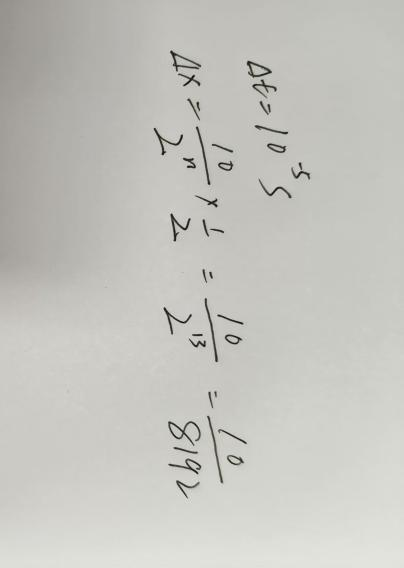 Δt = 10⁻⁵ S
Δx = 10/2ⁿ × 1/2 = 10/2¹³ = 10/8192